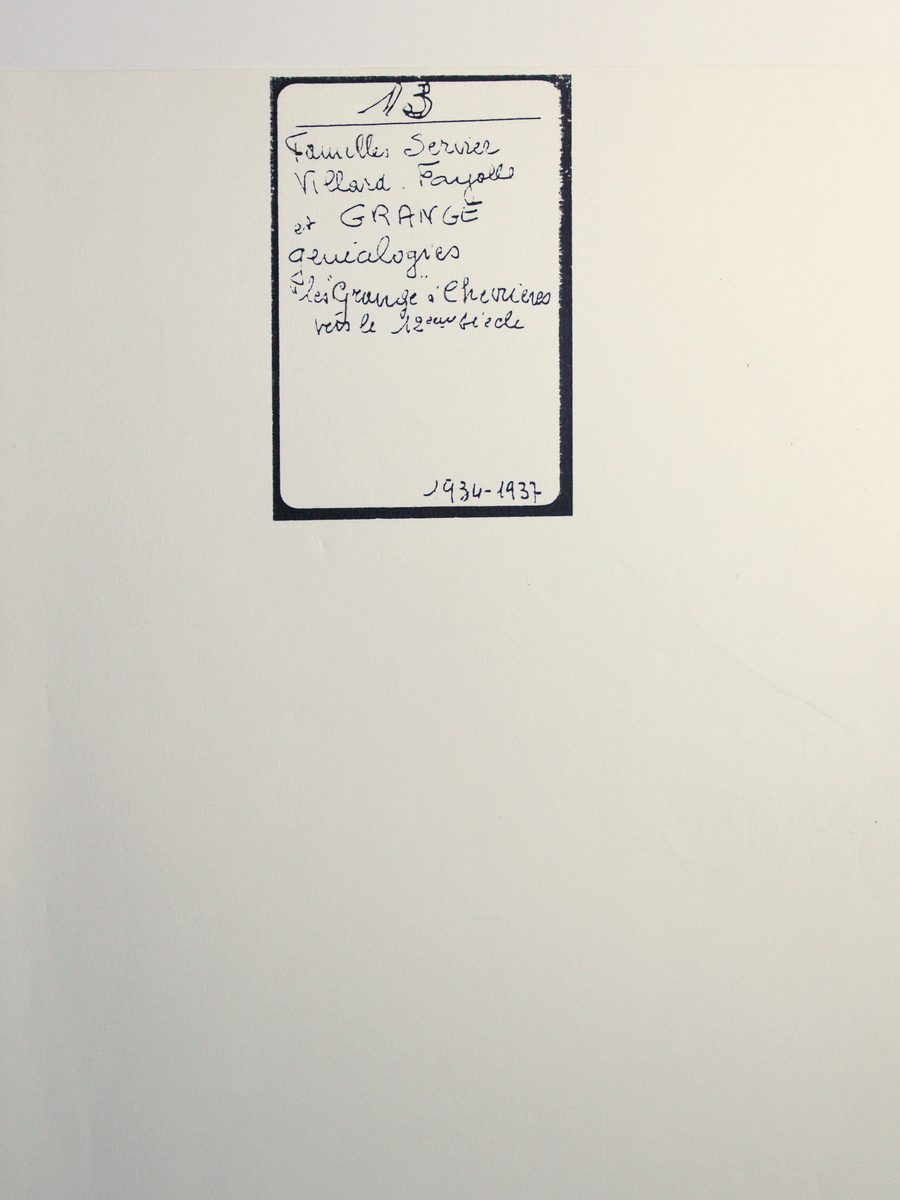 13
Familles Servier
Villard. Fayolle
et GRANGE
généalogies
"les Grange" à Chevrières
vers le 12ème siècle
1934-1937